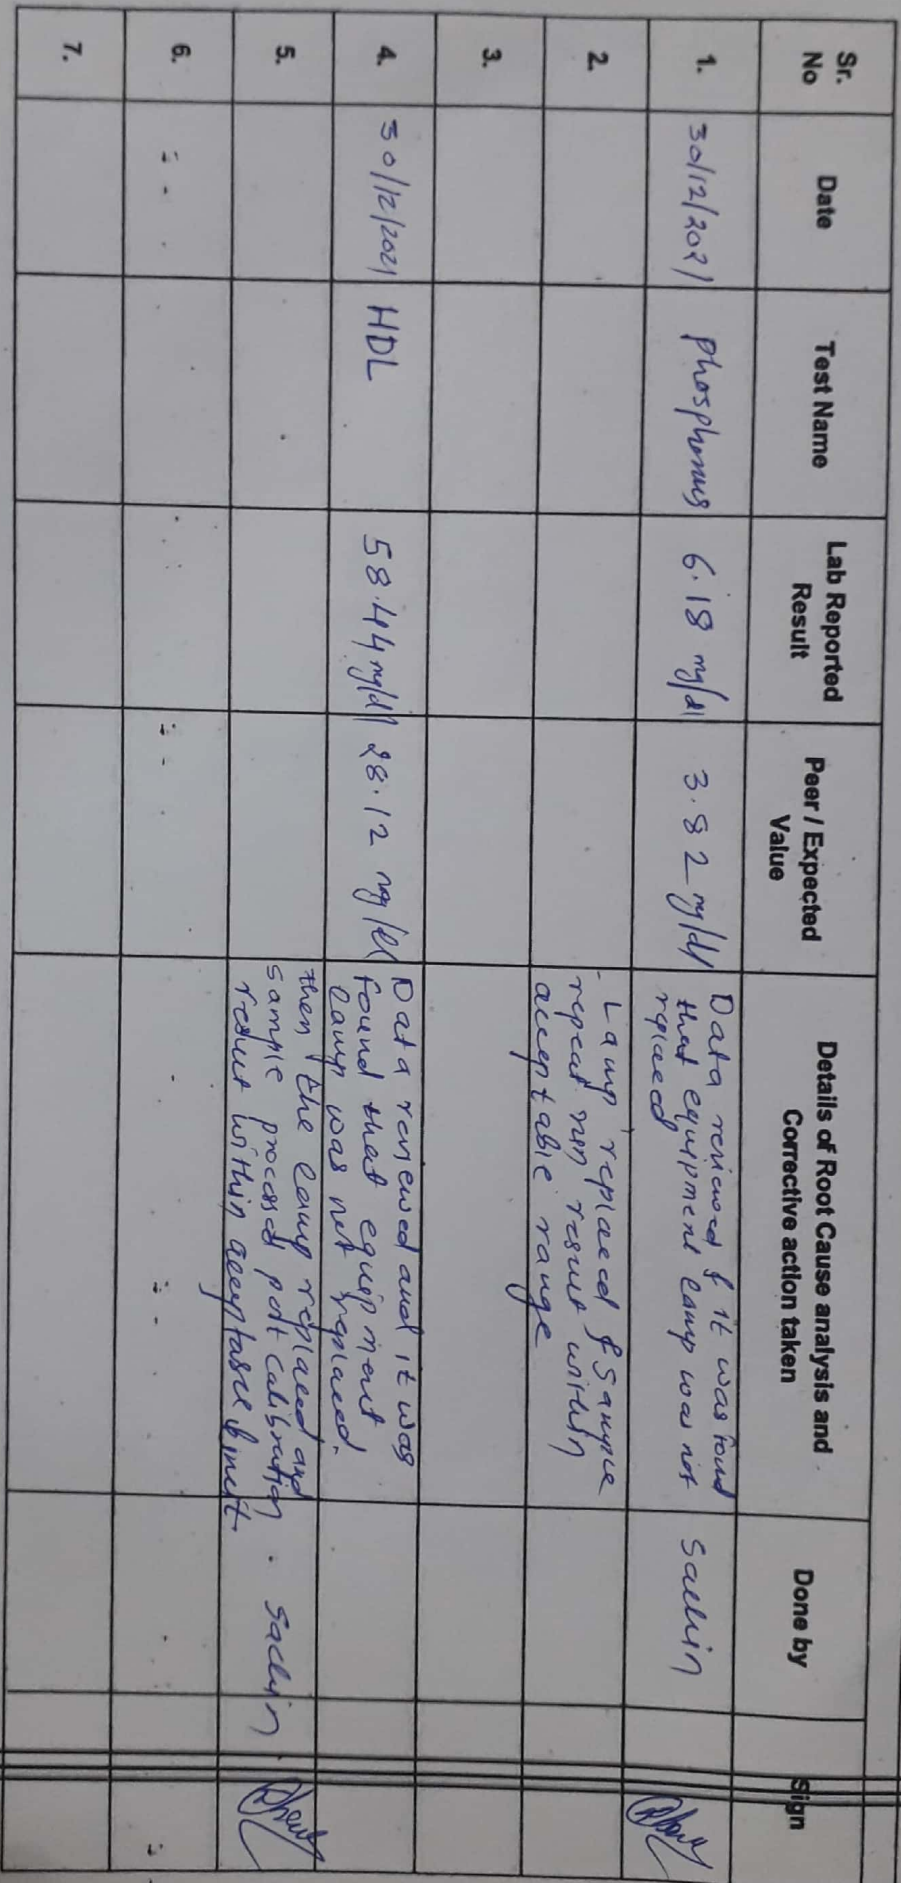 Sr. No Date Test Name Lab Reported Result Peer / Expected Value Details of Root Cause analysis and Corrective action taken Done by Sign
1. 30/12/2021 phosphorus 6.18 mg/dl 3.82 mg/dl Data reviewed & it was found
that equipment lamp was not
replaced Sachin
2. - Lamp replaced & sample
repeat run result within
acceptable range
3.
4. 30/12/2021 HDL 58.44 mg/dl 28.12 mg/dl Data reviewed and it was
found that equipment
lamp was not replaced.
5. then the lamp replaced and
sample processed post calibration
result within acceptable limit. Sachin
6.
7.